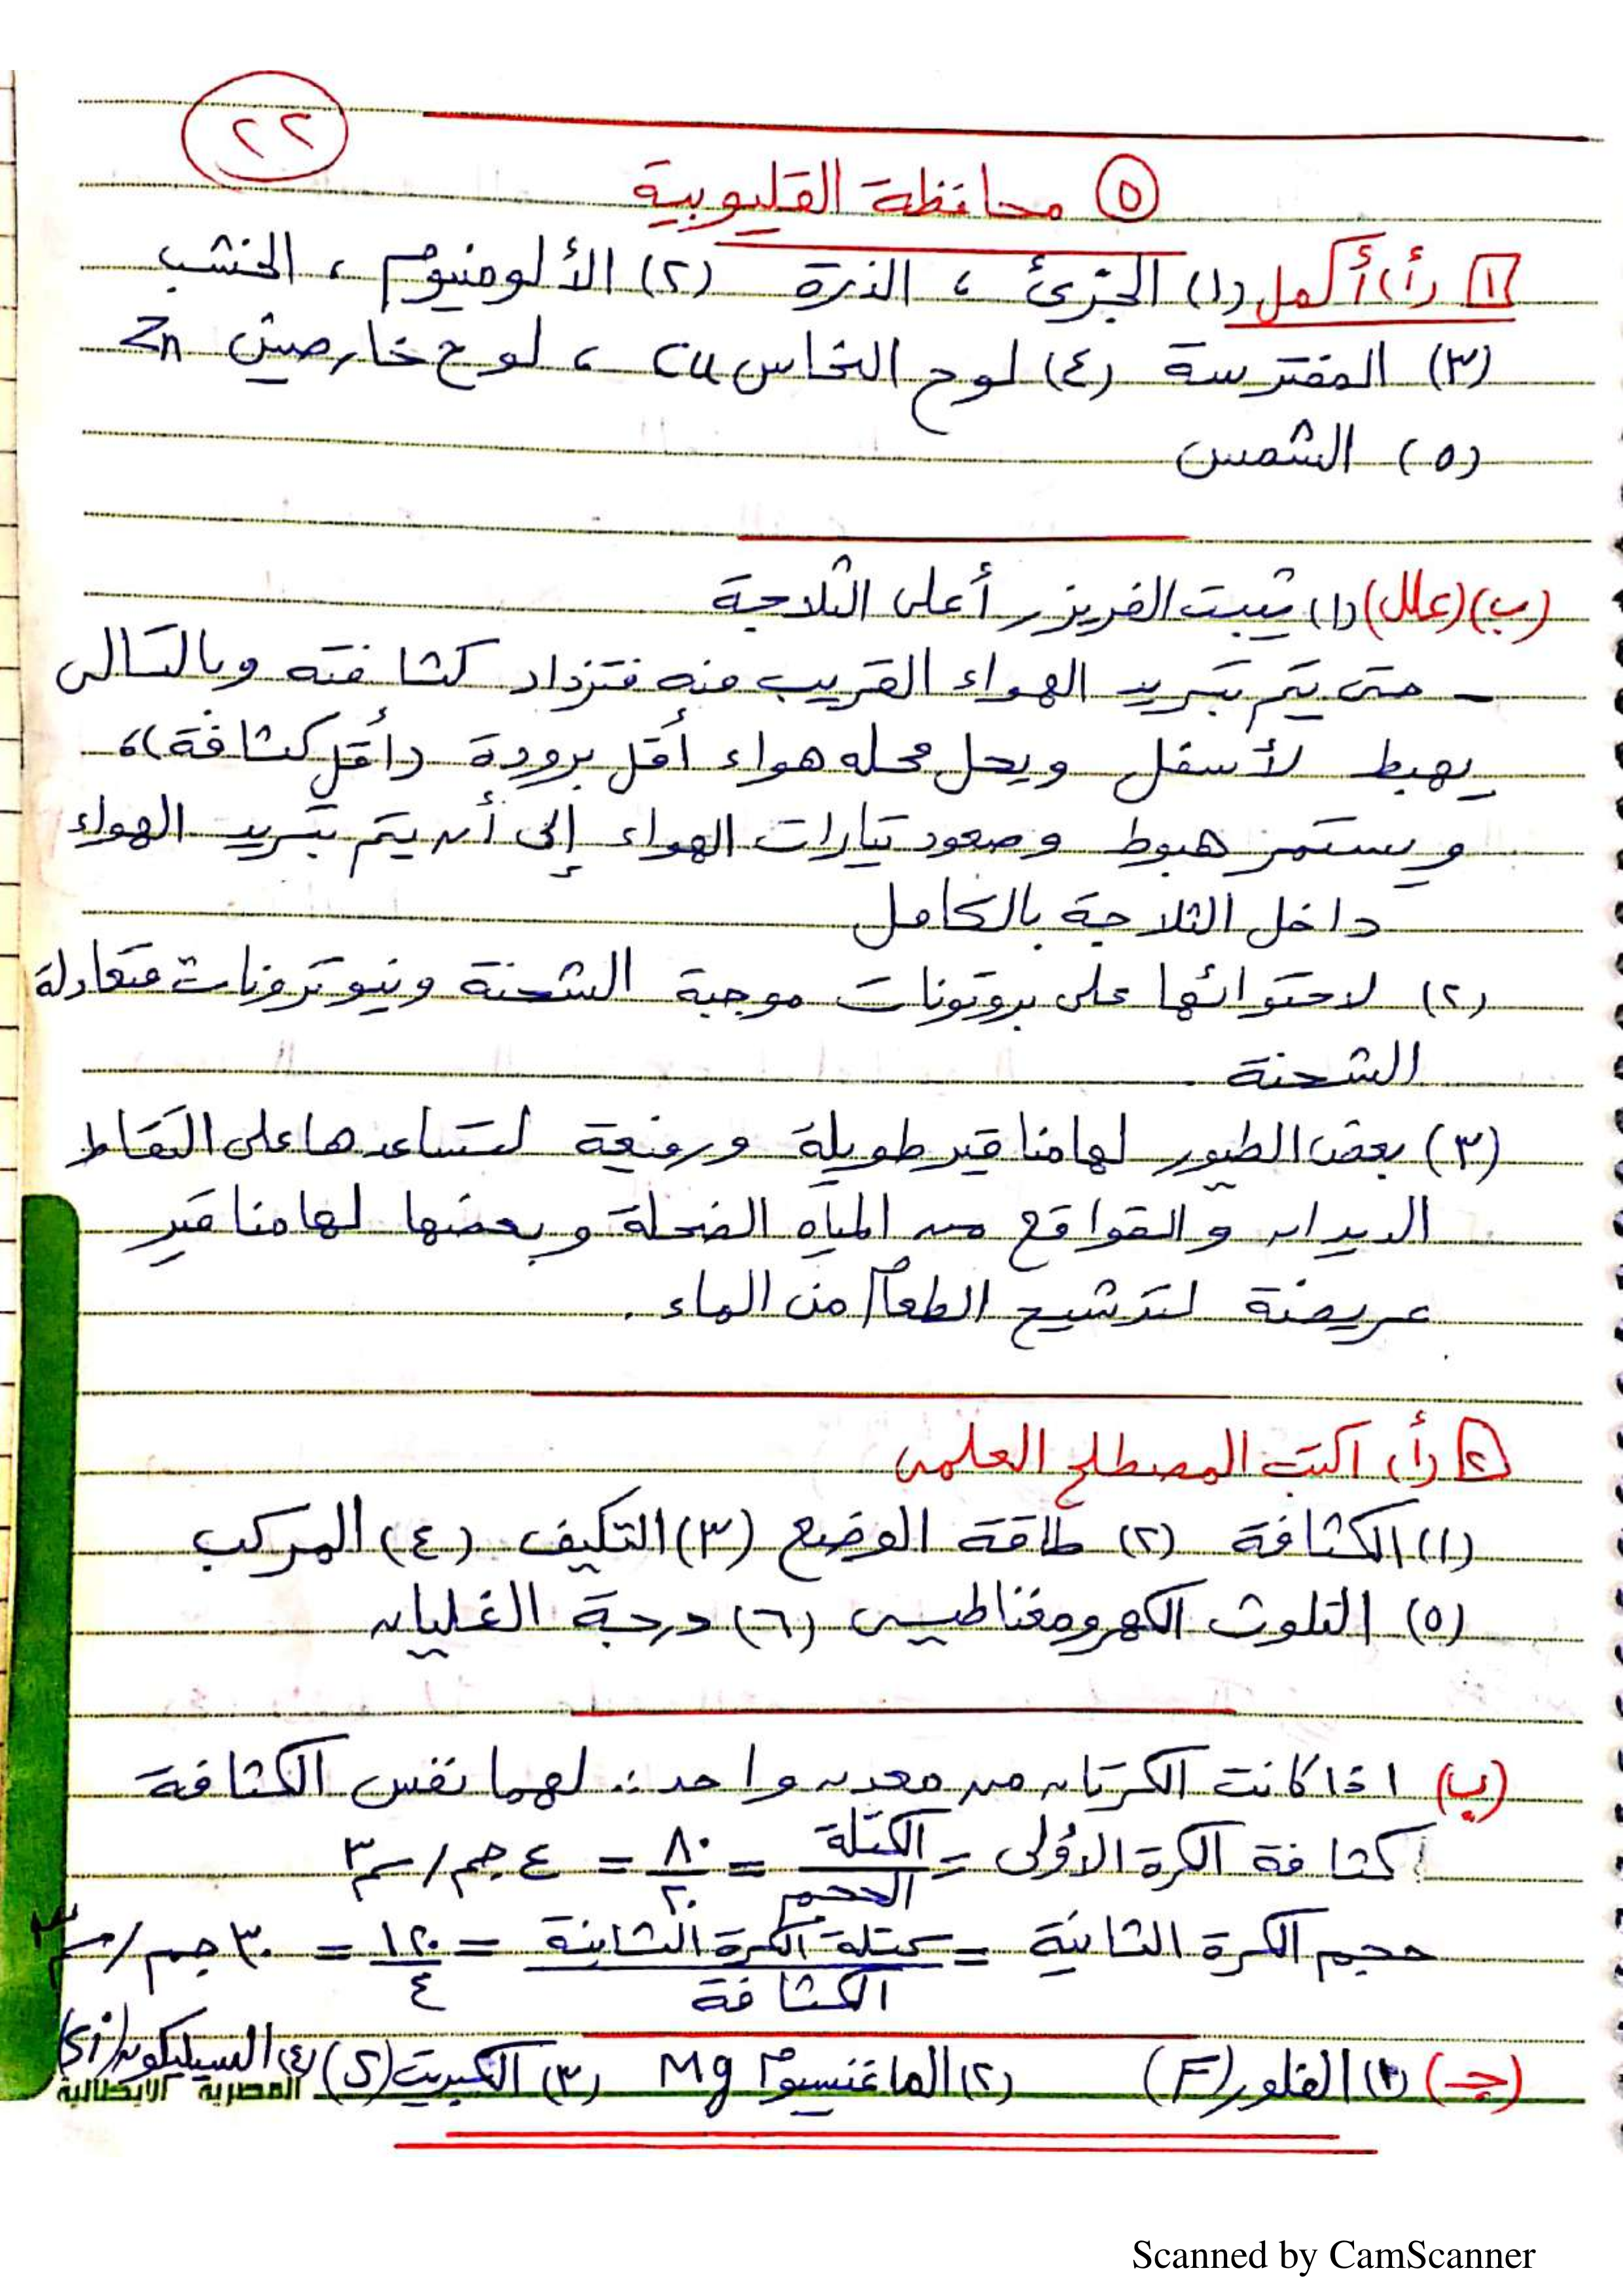 ٢٢
٥ محافظة القليوبية
١ (أ) أكمل (١) الجزئ ، الذرة (٢) الألومنيوم ، الخشب
(٣) المفترسة (٤) لوح النحاس Cu ، لوح خارصين Zn
(٥) الشمس
(ب) (علل) (١) يثبت الفريزر أعلى الثلاجة
- حتى يتم تبريد الهواء القريب منه فتزداد كثافته وبالتالى
يهبط لأسفل ويحل محله هواء أقل برودة (أقل كثافة)،
ويستمر هبوط وصعود تيارات الهواء إلى أن يتم تبريد الهواء
داخل الثلاجة بالكامل
(٢) لاحتوائها على بروتونات موجبة الشحنة ونيوترونات متعادلة
الشحنة
(٣) بعض الطيور لها مناقير طويلة ورفيعة لتساعدها على التقاط
الديدان والقواقع من المياه الضحلة وبعضها لها مناقير
عريضة لترشيح الطعام من الماء .
٢ (أ) اكتب المصطلح العلمى
(١) الكثافة (٢) طاقة الوضع (٣) التكيف (٤) المركب
(٥) التلوث الكهرومغناطيسى (٦) درجة الغليان
(ب) اذا كانت الكرتان من معدن واحد ∴ لهما نفس الكثافة
كثافة الكرة الأولى = الكتلة / الحجم = ٨٠ / ٢٠ = ٤ جم/سم٣
حجم الكرة الثانية = كتلة الكرة الثانية / الكثافة = ١٢٠ / ٤ = ٣٠ جم/سم٣
(جـ) (١) الفلور (F) (٢) الماغنسيوم Mg (٣) الكبريت (S) (٤) السيليكون (Si)
المصرية الايطالية
Scanned by CamScanner